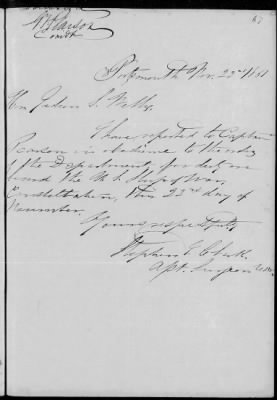 Pearson
Comdt
Portsmouth Nov. 22nd 1861
Hon Gideon S. Welles,
I have reported to Captain
Pearson in obedience to the orders
of the Department, for duty on
board the U. S. Sloop of War,
Constellation, this 22nd day of
November.
Yours respectfully
Stephen Clark
Asst. Surgeon U.S.N.